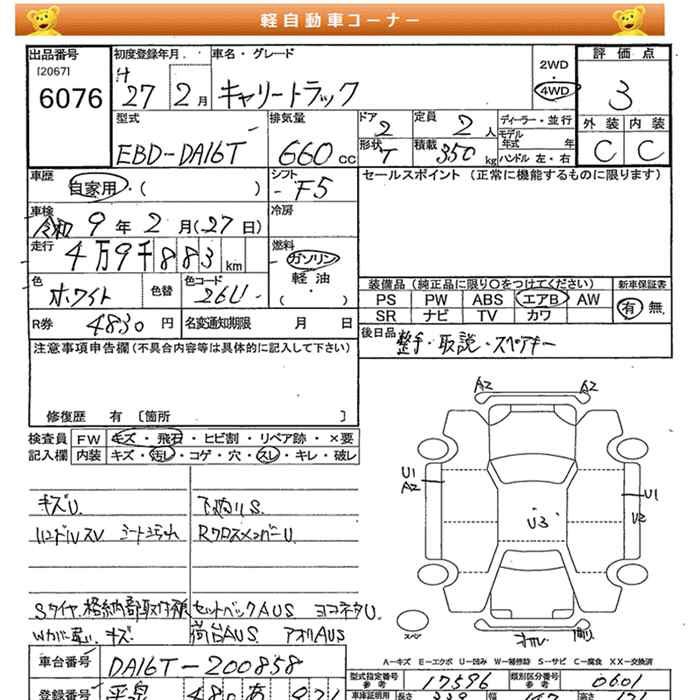 軽自動車コーナー
出品番号 [2067] 6076
初度登録年月 H 27 2月
車名・グレード キャリートラック
2WD・4WD
評価点 3
外装 C 内装 C
型式 EBD-DA16T
排気量 660 cc
ドア 2 形状 T
定員 2 人 積載 350 kg
ディーラー・並行
モデル年式 年
ハンドル 左・右
車歴 自家用・( )
シフト F5
セールスポイント (正常に機能するものに限ります)
車検 令和 9年 2月(27日)
冷房
走行 4万9千883 km
燃料 ガソリン・軽油・( )
色 ホワイト 色替 色コード 26U
装備品 (純正品に限り○をつけてください) 新車保証書
PS PW ABS エアB AW 有・無
SR ナビ TV カワ
R券 4830 円 名変通知期限 月 日
後日品 整手・取説・スペアキー
注意事項申告欄 (不具合内容等は具体的に記入して下さい)
修復歴 有 〔箇所 〕
検査員 FW キズ・飛石・ヒビ割・リペア跡・×要
記入欄 内装 キズ・汚レ・コゲ・穴・スレ・キレ・破レ
キズU. 下廻りS.
ハンドルスレ シートコスレ RクロスメンバーU.
Sタイヤ格納部取付 セットバックAUS
キズ 荷台AUS アオリAUS
A2 A2
U1 A2
U1 U2
U3
スペア
A-キズ E-エクボ U-凹み W-補修跡 S-サビ C-腐食 XX-交換済
車台番号 DA16T-200858
型式指定番号 参考 17596 類別区分番号 参考 0601
登録番号 480 あ
車庫証明用 長さ